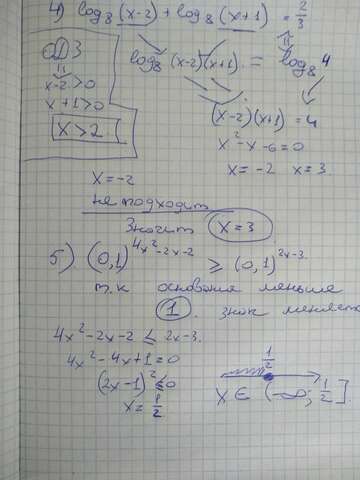 4) log₈(x-2) + log₈(x+1) = 2/3
ОДЗ
x-2>0
x+1>0
x>2
log₈(x-2)(x+1) = log₈4
(x-2)(x+1) = 4
x²-x-6=0
x=-2 x=3
x=-2
не подходит
Значит x=3
5) (0,1)^(4x²-2x-2) ≥ (0,1)^(2x-3)
т.к основание меньше
1. знак меняется
4x²-2x-2 ≤ 2x-3.
4x²-4x+1=0
(2x-1)² ≤0
x=1/2
1/2
x ∈ (-∞; 1/2]